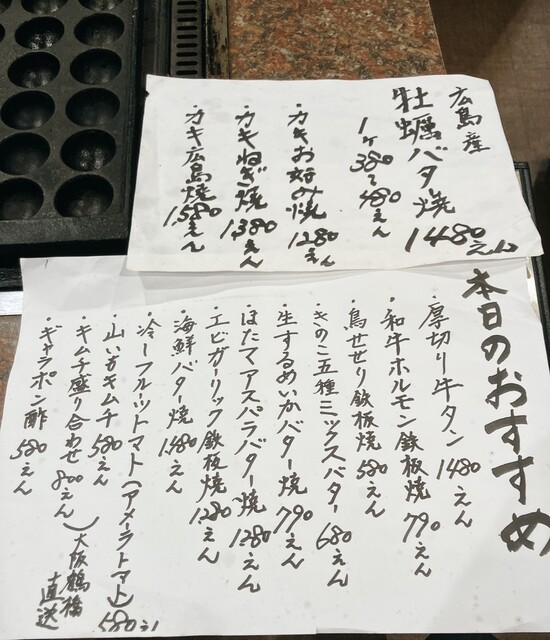 広島産
牡蠣バター焼 1480えん
1ヶ380 2ヶ480えん
・カキお好み焼 1280えん
・カキねぎ焼 1,380えん
・カキ広島焼 1,580えん
本日のおすすめ
・厚切り牛タン 1480えん
・和牛ホルモン鉄板焼 790えん
・鳥せせり鉄板焼 580えん
・きのこ五種ミックスバター 680えん
・生するめいかバター焼 790えん
・ほたてアスパラバター焼 1280えん
・エビガーリック鉄板焼 1280えん
・海鮮バター焼 1,480えん
・冷しフルーツトマト(アメーラトマト) 580えん
・山いもキムチ 580えん
・キムチ盛り合わせ 800えん
・ギャラポン酢 580えん
大阪鶴橋
直送